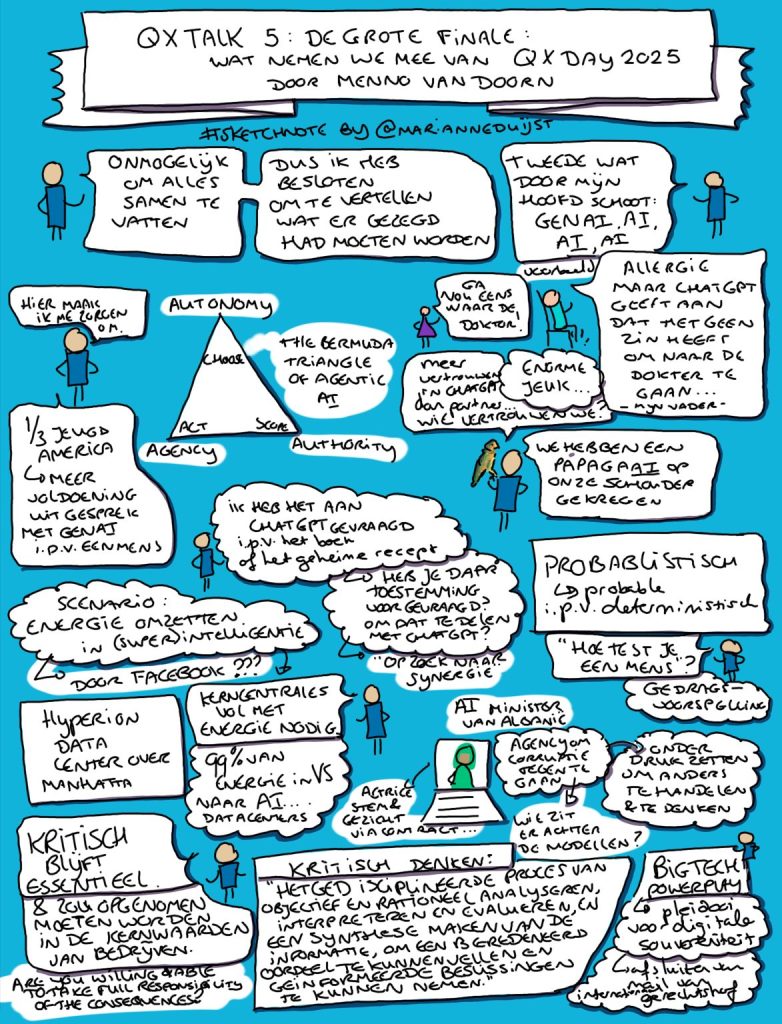 QX TALK 5: DE GROTE FINALE:
WAT NEMEN WE MEE VAN QX DAY 2025
DOOR MENNO VAN DOORN
#SKETCHNOTE BY @MARIANNEDUIJST
ONMOGELIJK
OM ALLES
SAMEN TE
VATTEN
DUS IK HEB
BESLOTEN
OM TE VERTELLEN
WAT ER GEZEGD
HAD MOETEN WORDEN
TWEEDE WAT
DOOR MIJN
HOOFD SCHOOT:
GENAI, AI,
AI, AI
voorbeeld
HIER MAAK
IK ME ZORGEN
OM.
AUTONOMY
CHOOSE
ACT
SCOPE
AGENCY
AUTHORITY
THE BERMUDA
TRIANGLE
OF AGENTIC
AI
GA
NOU EENS
NAAR DE
DOKTER!
ALLERGIE
MAAR CHATGPT
GEEFT AAN
DAT HET GEEN
ZIN HEEFT
OM NAAR DE
DOKTER TE
GAAN...
-MIJN VADER-
ENORME
JEUK...
meer
vertrouwen
in CHATGPT
dan partner
WIE VERTROUWEN WE?
1/3 JEUGD
AMERICA
↳ MEER
VOLDOENING
UIT GESPREK
MET GENAI
i.p.v. EEN MENS
WE HEBBEN EEN
PAPAGAAI OP
ONZE SCHOUDER
GEKREGEN
IK HEB HET AAN
CHATGPT GEVRAAGD
i.p.v. het boek
of het geheime recept
↳ HEB JE DAAR
TOESTEMMING
VOOR GEVRAAGD?
OM DAT TE DELEN
MET CHATGPT?
"OP ZOEK NAAR
SYNERGIE
PROBABLISTISCH
↳ probable
i.p.v. deterministisch
"HOE TEST JE
EEN MENS"?
GEDRAGS-
VOORSPELLING
SCENARIO:
ENERGIE OMZETTEN
IN (SUPER)INTELLIGENTIE
DOOR FACEBOOK???
HYPERION
DATA
CENTER OVER
MANHATTA
KERNCENTRALES
VOL MET
ENERGIE NODIG.
99% VAN
ENERGIE IN VS
NAAR AI....
DATACENTERS
AI MINISTER
VAN ALBANIE
ACTRICE
STEM &
GEZICHT
VIA CONTRACT...
AGENCY OM
CORRUPTIE
TEGEN TE
GAAN
ONDER
DRUK ZETTEN
OM ANDERS
TE HANDELEN
& TE DENKEN
WIE ZIT
ER ACHTER
DE MODELLEN?
KRITISCH
BLIJFT
ESSENTIEEL.
& ZOU OPGENOMEN
MOETEN WORDEN
IN DE KERNWAARDEN
VAN BEDRIJVEN.
ARE YOU WILLING & ABLE
TO TAKE FULL RESPONSIBILITY
OF THE CONSEQUENCES
KRITISCH DENKEN:
"HET GEDISCIPLINEERDE PROCES VAN
OBJECTIEF EN RATIONEEL ANALYSEREN,
INTERPRETEREN EN EVALUEREN, EN
EEN SYNTHESE MAKEN VAN DE
INFORMATIE, OM EEN BEREDENEERD
OORDEEL TE KUNNEN VELLEN EN
GEINFORMEERDE BESLISSINGEN
TE KUNNEN NEMEN."
BIGTECH
POWERPLAY
↳ pleidooi
voor digitale
souvereiteit
↳ afsluiten van
mail van
internationaal gerechtshof